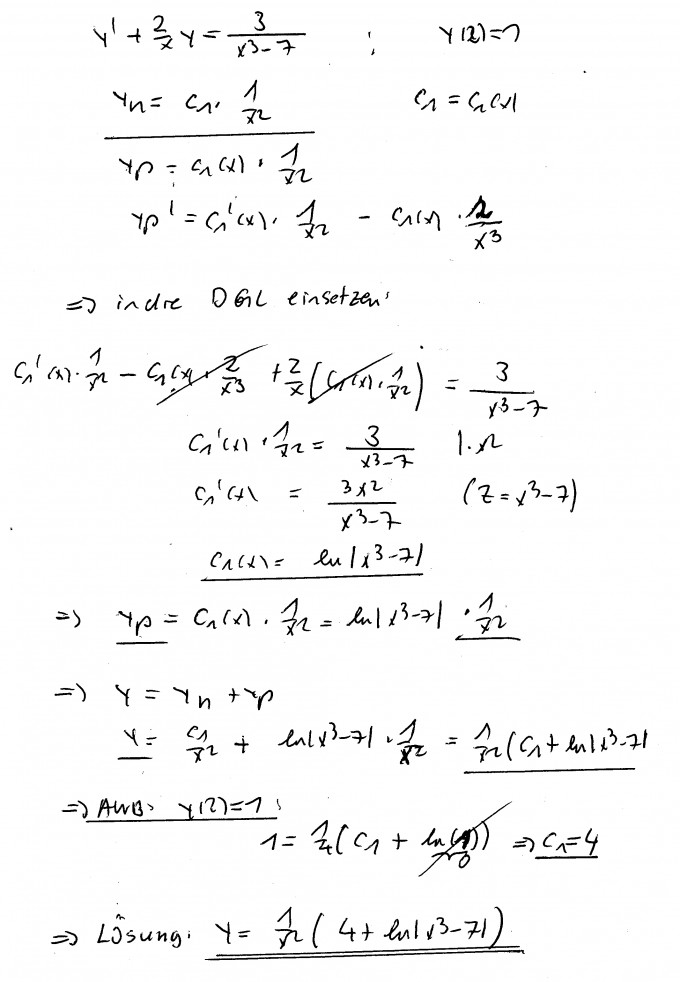 y' + 2/x y = 3/(x³-7) ; y(2)=1
yh = c1 · 1/x² c1 = c1(x)
yp = c1(x) · 1/x²
yp' = c1'(x) · 1/x² - c1(x) · 2/x³
=> in dre DGL einsetzen:
c1'(x) · 1/x² - c1(x) · 2/x³ + 2/x (c1(x) · 1/x²) = 3/(x³-7)
c1'(x) · 1/x² = 3/(x³-7) | · x²
c1'(x) = 3x²/(x³-7) (z = x³-7)
c1(x) = ln|x³-7|
=> yp = c1(x) · 1/x² = ln|x³-7| · 1/x²
=> y = yh + yp
y = c1/x² + ln|x³-7| · 1/x² = 1/x² (c1 + ln|x³-7|
=> AWB: y(2)=1:
1 = 1/4 (c1 + ln(1)) => c1=4
=> Lösung: y = 1/x² (4 + ln|x³-7|)